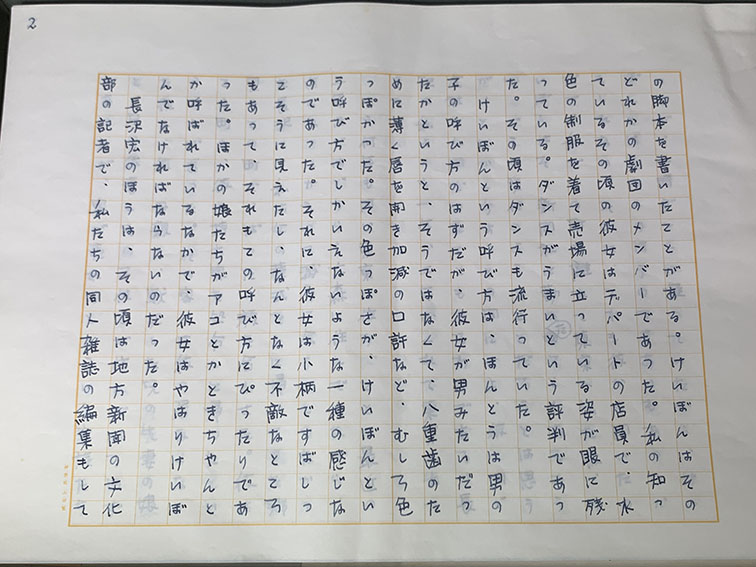 2
の脚本を書いたことがある。けいぼんはその
どれかの劇団のメンバーであった。私の知っ
ているその頃の彼女はデパートの店員で、水
色の制服を着て売場に立っている姿が眼に残
っている。ダンスがうまいという評判であっ
た。その頃はダンスも流行っていた。
けいぼんという呼び方は、ほんとうは男の
子の呼び方のはずだが、彼女が男みたいだっ
たかというと、そうではなくて、八重歯のた
めに薄く唇を開き加減の口許など、むしろ色
っぽかった。その色っぽさが、けいぼんとい
う呼び方でしかいえないような一種の感じな
のであった。それに、彼女は小柄ですばしっ
こそうに見えたし、なんとなく不敵なところ
もあって、それもこの呼び方にぴったりであ
った。ほかの娘たちがアコとかときちゃんと
か呼ばれているなかで、彼女はやはりけいぼ
んでなければならないのだった。
長沢宏のほうは、その頃は地方新聞の文化
部の記者で、私たちの同人雑誌の編集もして